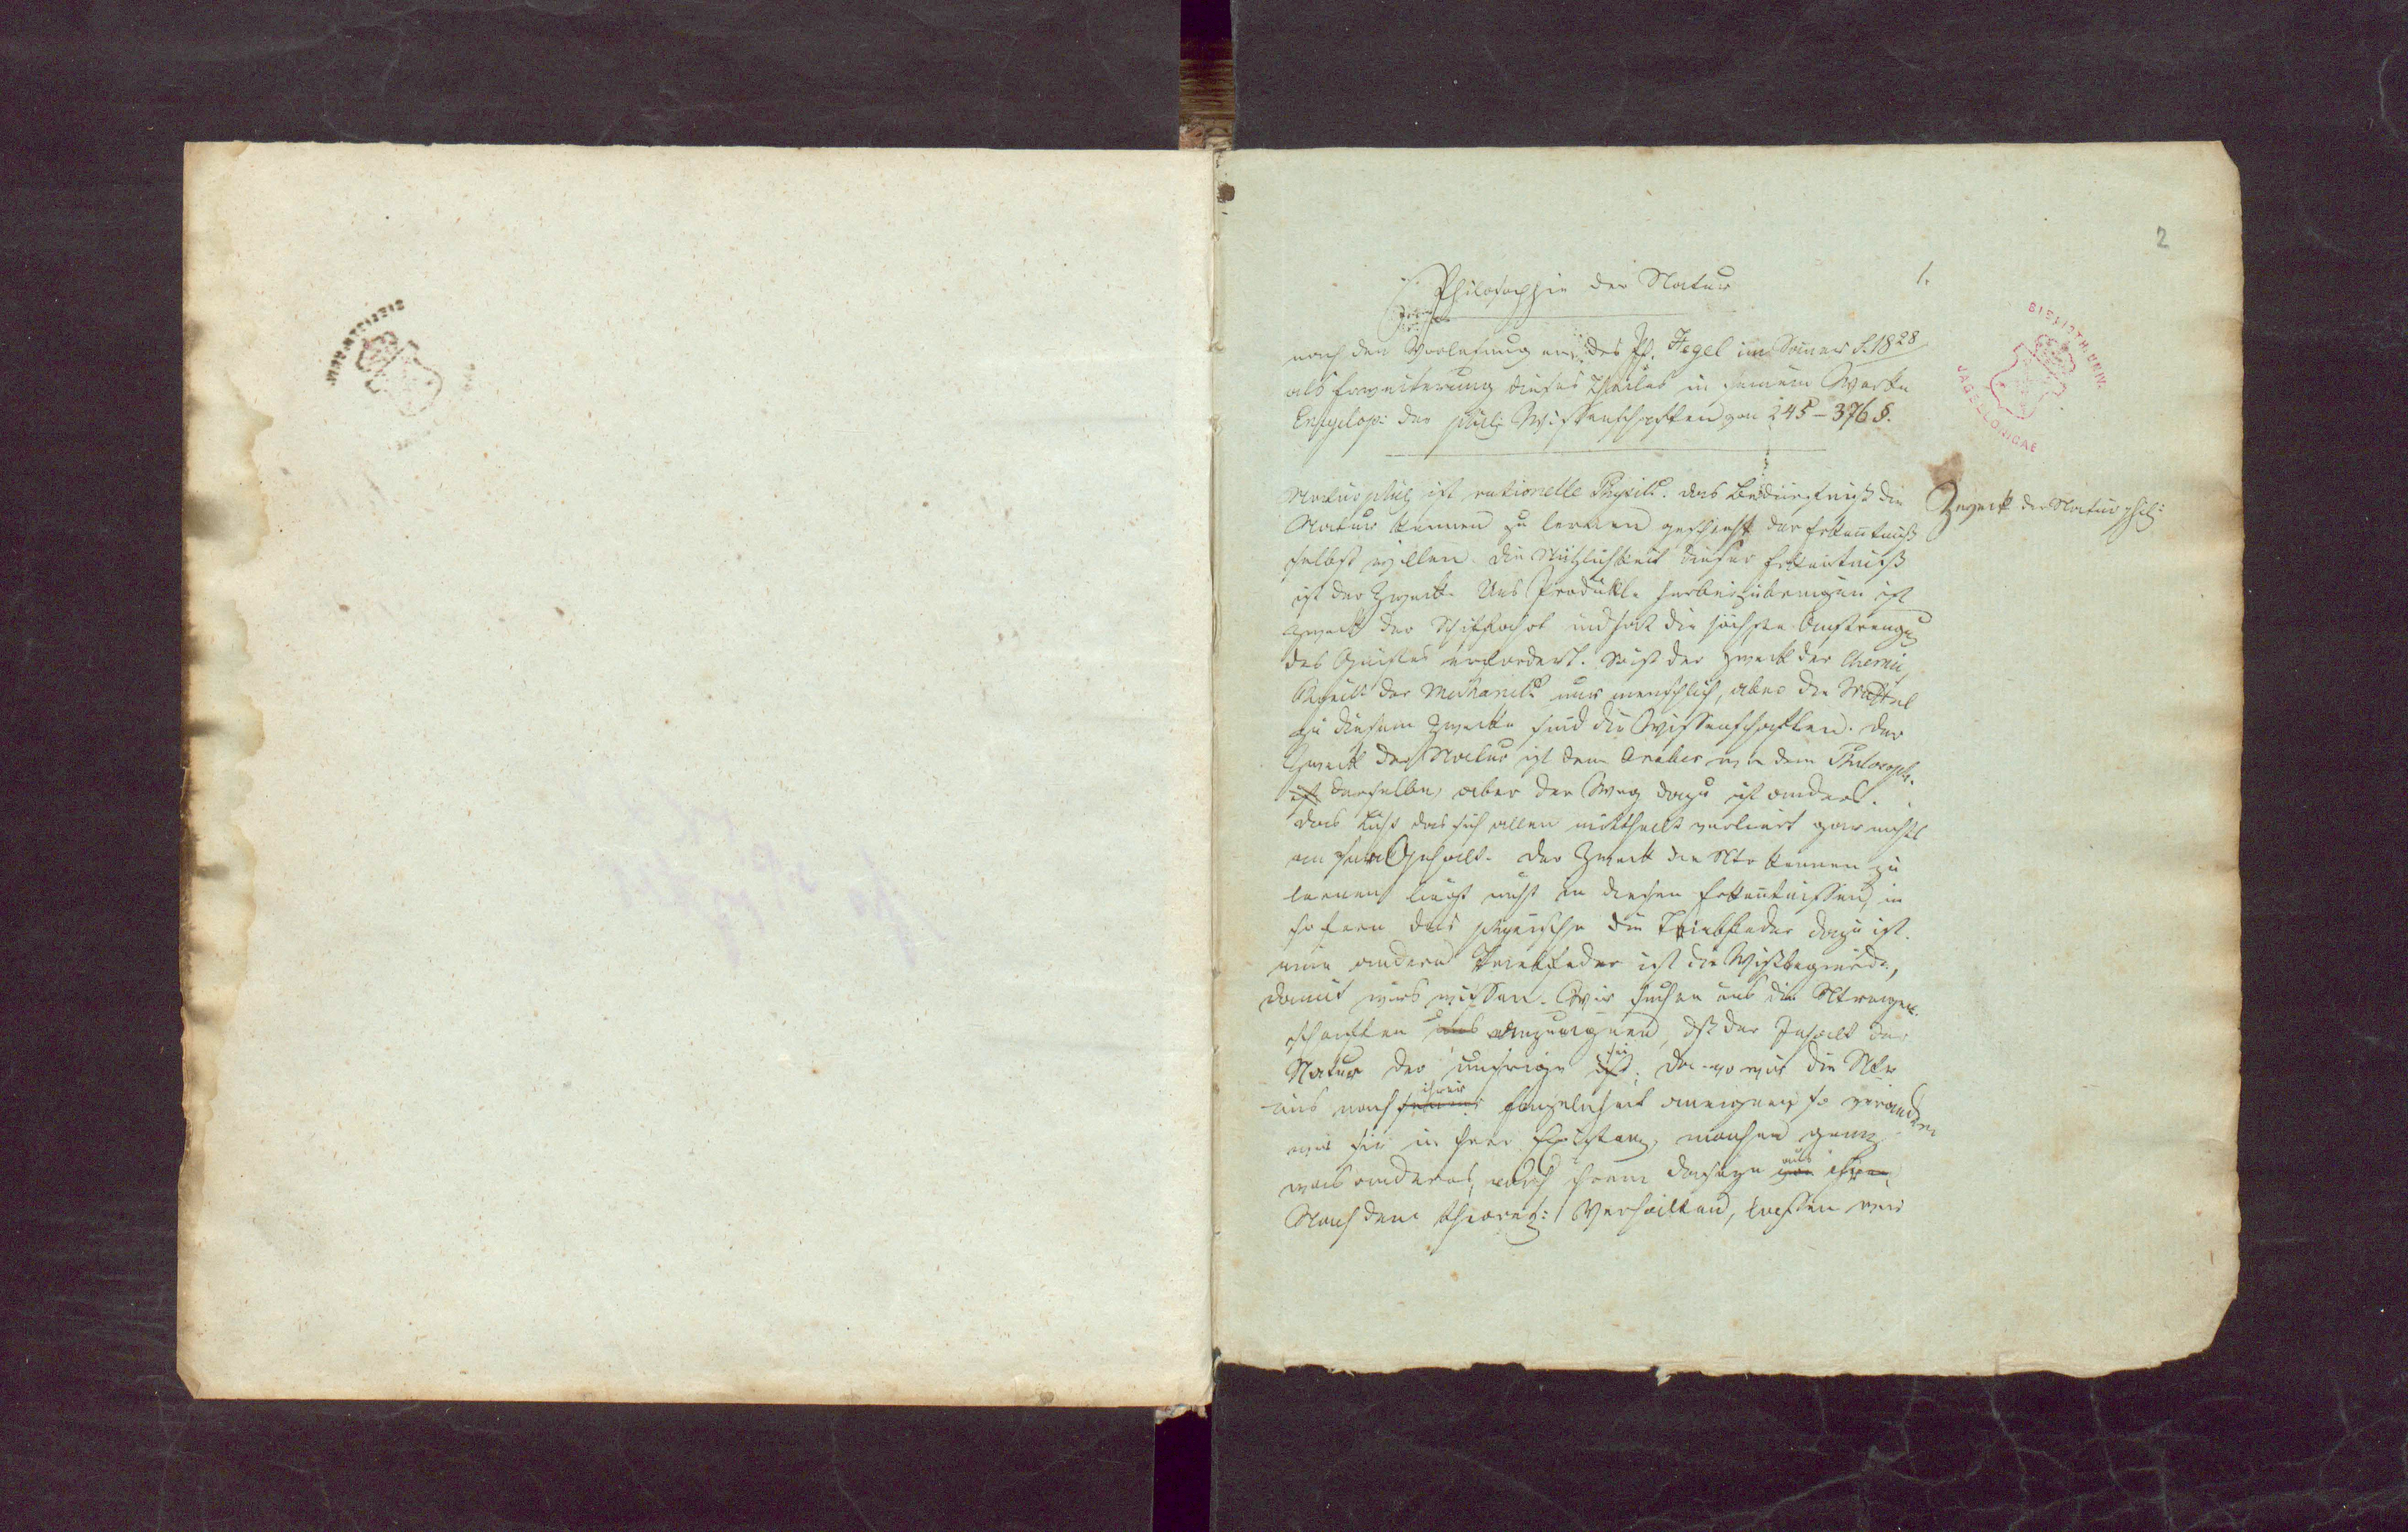 2
1.
Philosophie der Natur
nach den Vorlesungen des Pf. Hegel im Somer S. 1828
als Erweiterung dieses Theiles in seinem Werke
Encyclop: der phil: Wissenschaften von 245 – 376 §.
BIBLIOTH. UNIV.
JAGELLONICAE
Zweck der Naturphil:
Naturphil: ist rationelle Physik. das Bedürfniß die
Natur kennen zu lernen geschieht der Erkentniß
selbst willen. die Nützlichkeit dieser Erkentniß
ist der Zweck. Uns Produkte herbeizubringen ist
Zweck der und hat die höchste Anstrengg
des Geistes erfordert. So ist der Zweck der Chemie,
Physik der Mechanik nur menschlich, aber die Mittel
zu diesem Zwecke sind die Wissenschaften. der
Zweck der Natur ist dem Araber wie dem Philosoph.
ist derselbe, aber der Weg dazu ist anders.
das Licht das sich allen mittheilt verliert gar nichts
an Gehalt. Der Zweck die Ntr kennen zu
lernen liegt nicht in diesen Erkentnissen, in
sofern das physische die Triebfeder dazu ist.
eine andere Triebfeder ist die Wißbegierde,
damit wirs wissen. Wir suchen uns die Ntreigen-
schaften uns anzueignen, dß der Inhalt der
Natur der unsrige ist sei; da wo wir die Ntr
uns nach ihrer Einzelnheit aneignen, so verändern
wir sie in ihrer Existenz, machen ganz
was anderes, nach ihrem Daseyn aus
Nach dem theoret: Verhalten, lassen wir